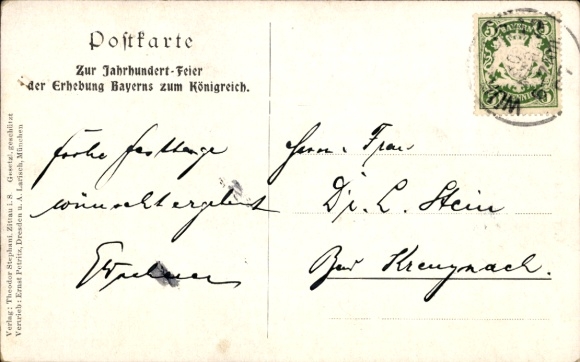 Postkarte
Zur Jahrhundert-Feier
der Erhebung Bayerns zum Königreich.
frohe Festtage
wünscht ergebenst
Herrn u. Frau
Dr. L. Stein
Bad Kreuznach.
BAYERN
5 5
Verlag: Theodor Stephani, Zittau i. S. Gesetzl. geschützt
Vertrieb: Ernst Petritz, Dresden u. A. Larisch, München